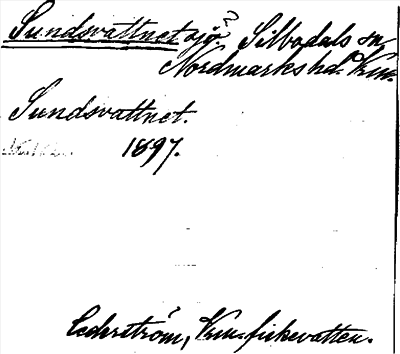 Sundsvattnet sjö? Silbodals sn
Nordmarks hd. Vrm.
Sundsvattnet.
1897.
Cederström, Vrm. fiskevatten.